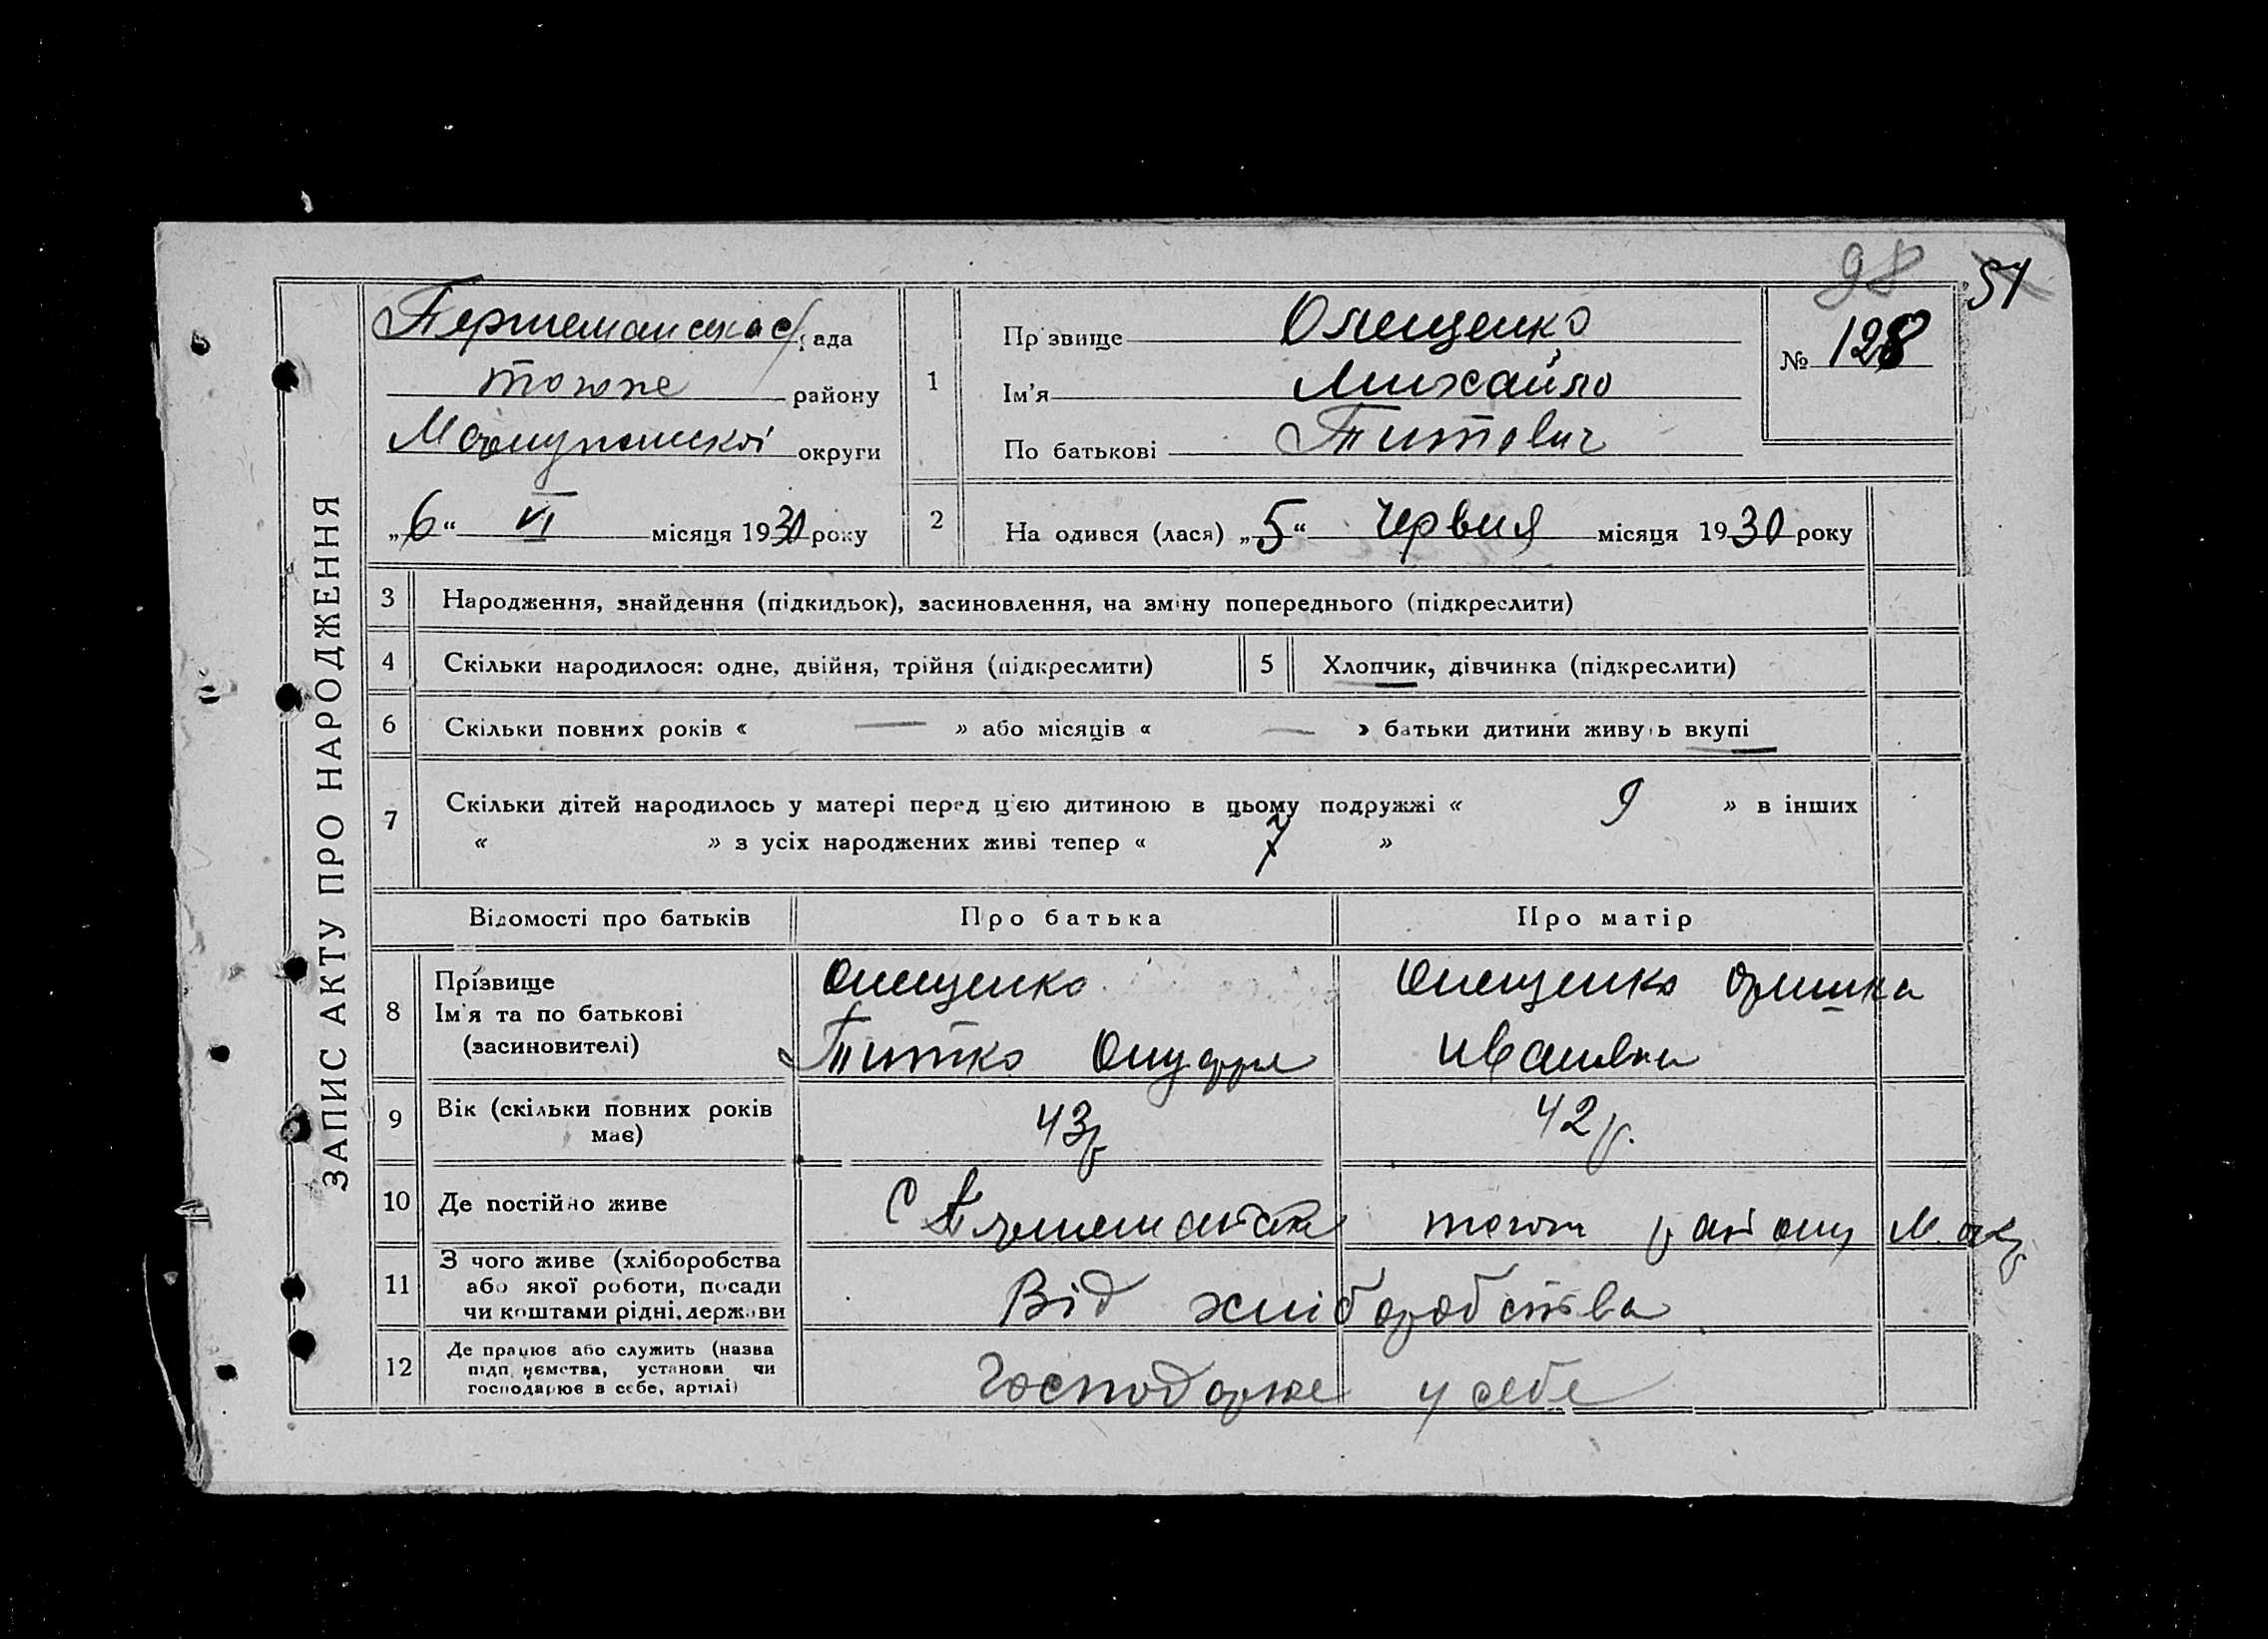 98 51
ЗАПИС АКТУ ПРО НАРОДЖЕННЯ
рада
тогоже району
округи
„6“ VI місяця 1930 року
1
Прізвище Онещенко
Ім'я Михайло
По батькові Титович
№ 128
2 На одився (лася) „5“ Червня місяця 1930 року
3 Народження, знайдення (підкидьок), засиновлення, на зміну попереднього (підкреслити)
4 Скільки народилося: одне, двійня, трійня (підкреслити) 5 Хлопчик, дівчинка (підкреслити)
6 Скільки повних років « — » або місяців « — » батьки дитини живуть вкупі
7 Скільки дітей народилось у матері перед цією дитиною в цьому подружжі « 9 » в інших
« » з усіх народжених живі тепер « 7 »
Відомості про батьків Про батька Про матір
8 Прізвище
Ім'я та по батькові
(засновителі)
Онищенко
Титко
Онищенко Оришка
Ивановна
9 Вік (скільки повних років
має)
43р 42р.
10 Де постійно живе С району М. окр
11 З чого живе (хліборобства
або якої роботи, посади
чи коштами рідні, держави
Від хліборобства
12 Де працює або служить (назва
підприємства, установи чи
господарює в себе, артілі)
Господарює у себе